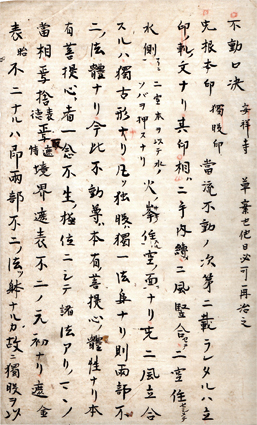 不動口決 安祥寺 草案也他日必可再治之
先根本印 獨股印 當流不動ノ次第ニ載ラレタルハ立
印軌文ナリ其印相ハ二手内縛シ二風竪合セ二空任セヨ
水側ニ 二空ヲ以テ二水ノソバヲ押スナリ 火輪任空面ナリ先二風立合
スルハ獨古形ナリ凡ソ獨股ハ獨一法身ナリ則両部不
二ノ法體ナリ今此不動尊ハ本有ノ菩提心ノ體性ナリ本
有菩提心ノ者一念不生ノ極位ニシテ諸法アリノマヽノ
當相ヲ尊捨 境界遮表不二ノ元初ナリ遮金
表胎 不二ナルハ即両部不二ノ法躰ナルカ故ニ獨股ヲ以